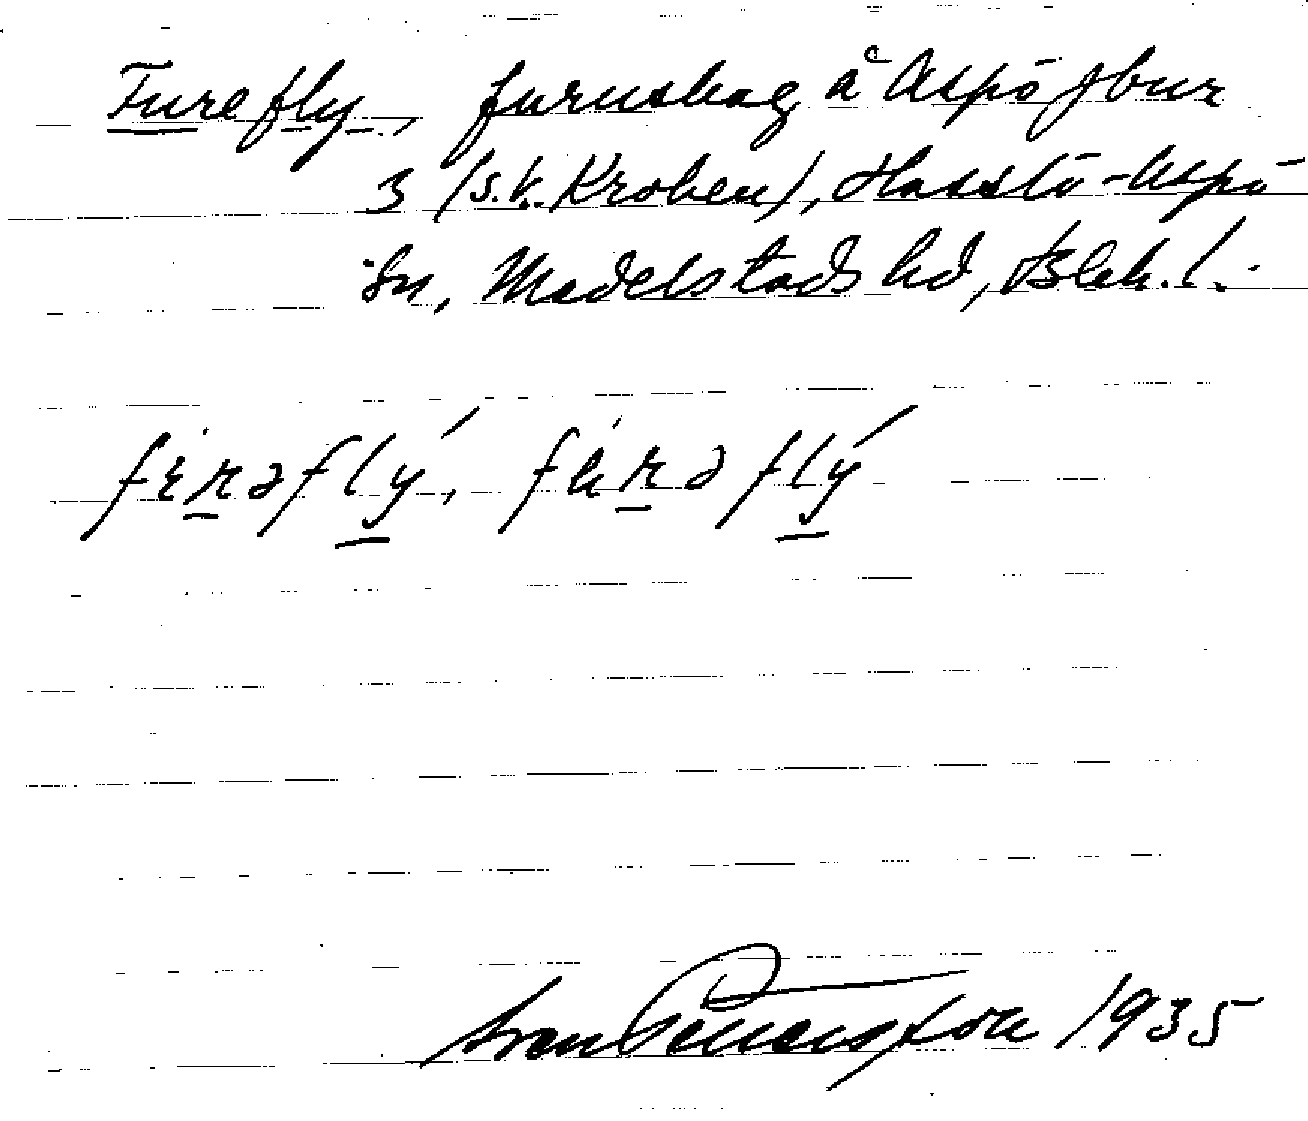 Furefly, furuskog å Aspö Jbur
3 (s.v. Kroken), Hasslö-Aspö
sn, Medelstads hd, Blek. l.
fúrəflý, fúrəflý
Sven Benson 1935